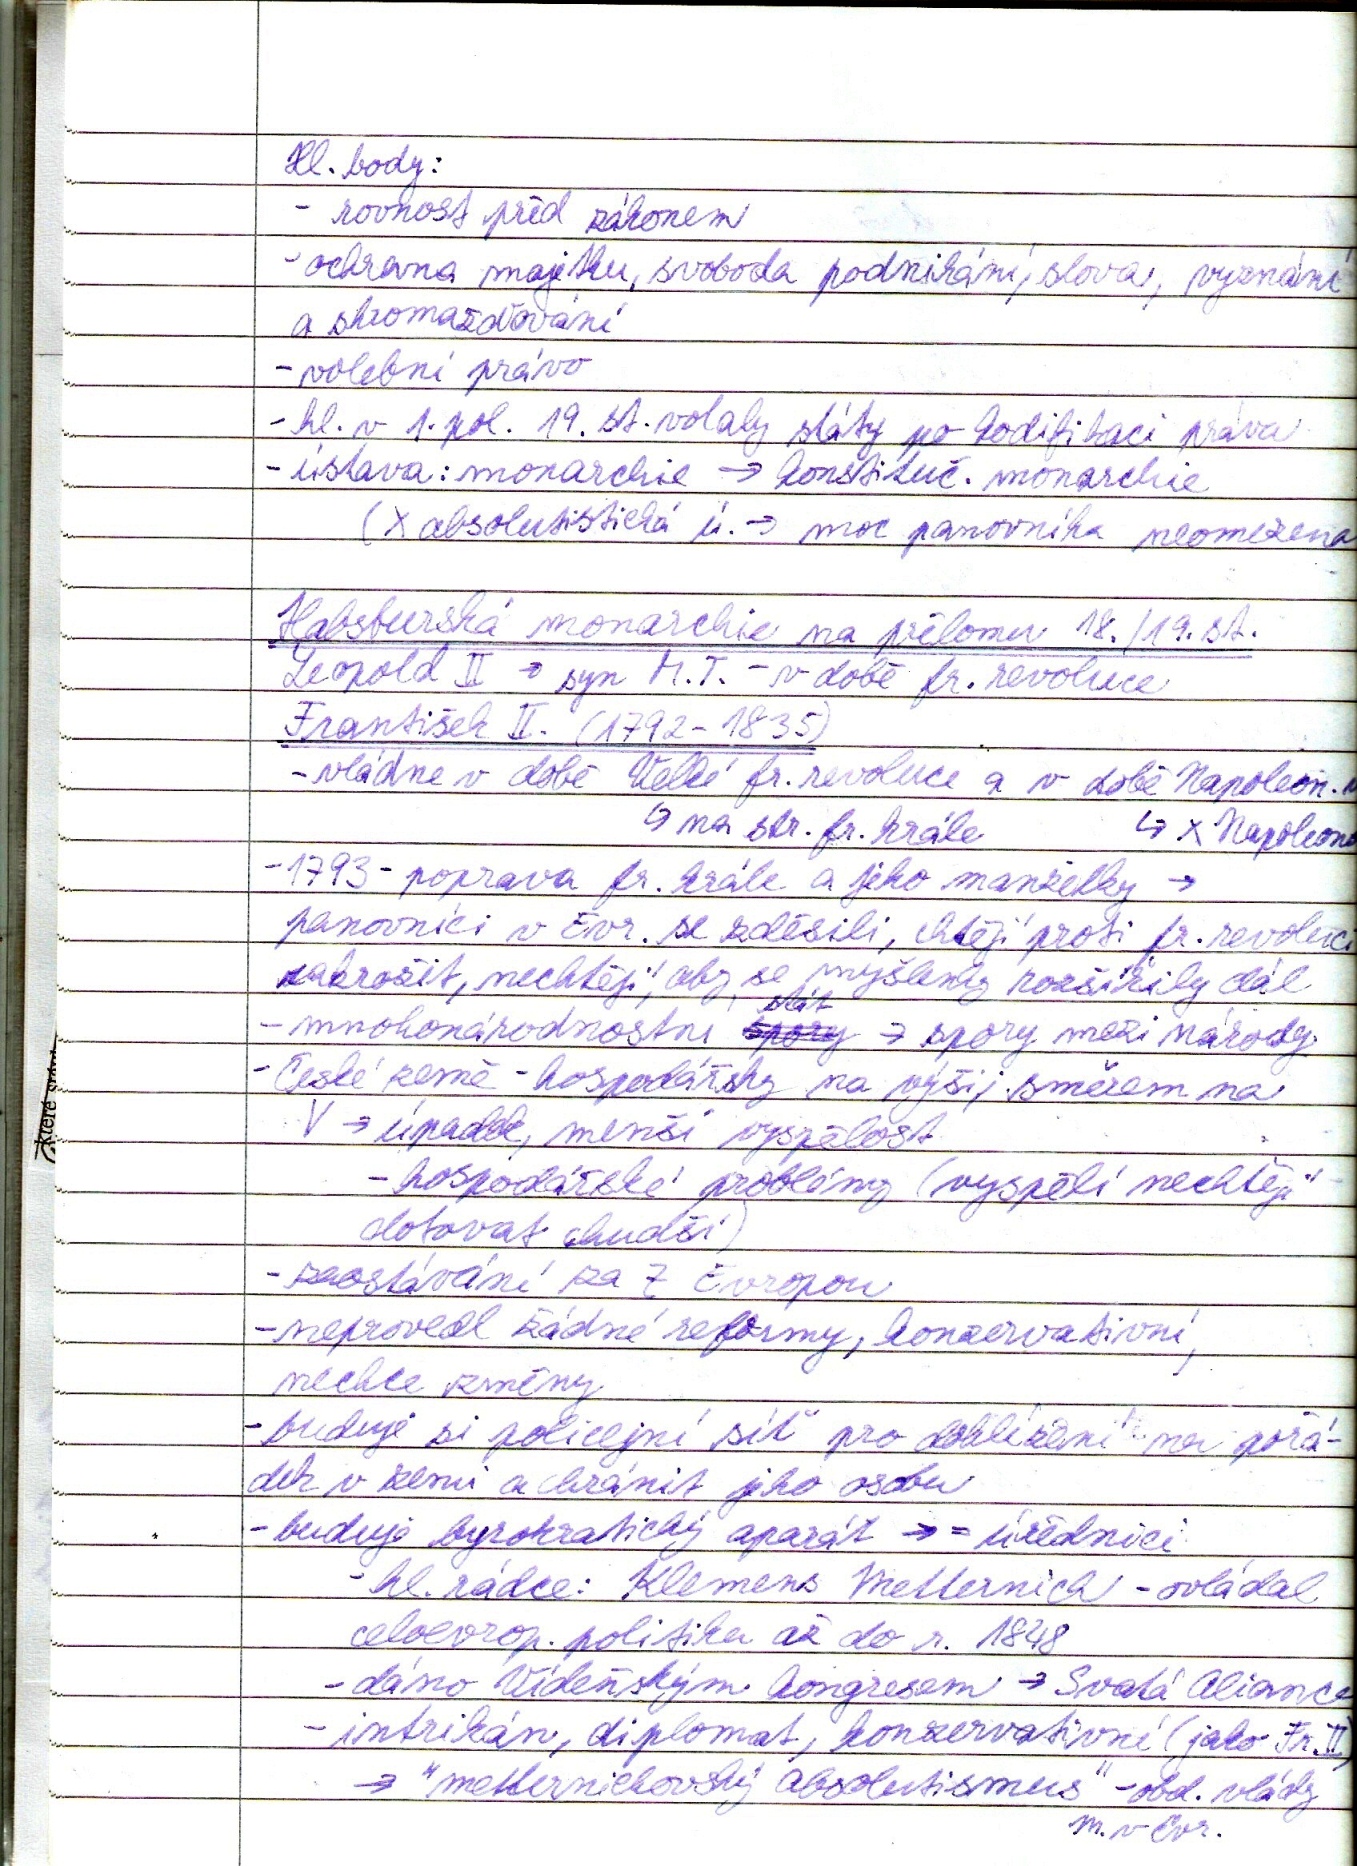 Hl. body:
- rovnost před zákonem
- ochrana majetku, svoboda podnikání, slova, vyznání
a shromažďování
- volební právo
- hl. v 1. pol. 19. st. volaly státy po kodifikaci práva
- ústava: monarchie → konstituč. monarchie
(X absolutistická ú. → moc panovníka neomezena
Habsburská monarchie na přelomu 18./19. st.
Leopold II → syn M.T. - v době fr. revoluce
František II. (1792-1835)
- vládne v době Velké fr. revoluce a v době Napoleon.
↳ na str. fr. krále ↳ X Napoleono
- 1793 - poprava fr. krále a jeho manželky →
panovníci v Evr. se zděsili, chtějí proti fr. revoluci
zakročit, nechtějí, aby se myšlenky rozšířily dál
stát
- mnohonárodnostní spory → spory mezi národy
- České země - hospodářsky na výši, směrem na
V → úpadek, menší vyspělost
- hospodářské problémy (vyspělí nechtějí
dotovat chudší)
- zaostávání za Z Evropou
- neprovedl žádné reformy, konzervativní,
nechce změny
- buduje si policejní síť pro dohlížení na pořá-
dek v zemi a chránit jeho osobu
- buduje byrokratický aparát → = úředníci
- hl. rádce: Klemens Metternich - ovládal
celoevrop. politiku až do r. 1848
- dáno Vídeňským kongresem → Svatá Aliance
- intrikán, diplomat, konzervativní (jako Fr. II)
→ "metternichovský absolutismus" - obd. vlády
m. v Evr.
které